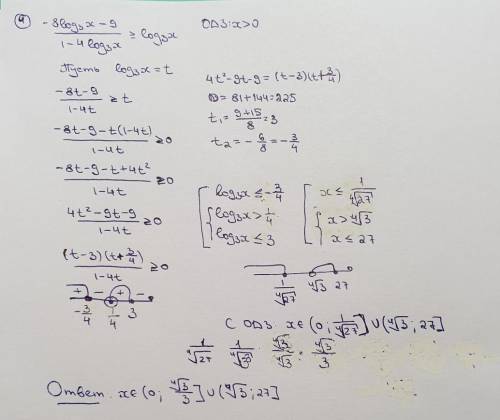 ④ -8log₃x-9 / 1-4log₃x ≥ log₃x
ОДЗ: x>0
Пусть log₃x = t
-8t-9 / 1-4t ≥ t
-8t-9-t(1-4t) / 1-4t ≥0
-8t-9-t+4t² / 1-4t ≥0
4t²-9t-9 / 1-4t ≥0
(t-3)(t+3/4) / 1-4t ≥0
+ - + -
-3/4 1/4 3
4t²-9t-9=(t-3)(t+3/4)
D=81+144=225
t₁=9+15/8=3
t₂=-6/8=-3/4
[ log₃x ≤ -3/4
{ log₃x > 1/4
log₃x ≤ 3
[ x ≤ 1/⁴√27
{ x > ⁴√3
x ≤ 27
1/⁴√27 ⁴√3 27
С ОДЗ x∈(0; 1/⁴√27]∪(⁴√3; 27]
1/⁴√27 ⁴√3/⁴√3 = ⁴√3/3
Ответ. x∈(0; ⁴√3/3]∪(⁴√3; 27]